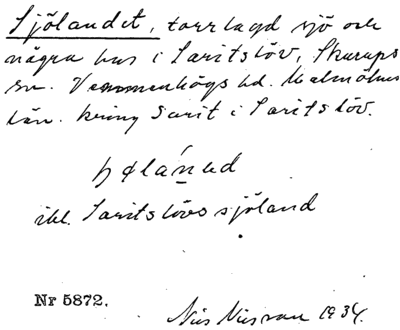 Sjölandet, torrlagd sjö och
några hus i Saritslöv, Skurups
sn. Vemmenhögs hd. Malmöhus
län. kring Sarit i Saritslöv.
ibl. Saritslövs sjöland
Nr 5872.
Nils Nilsson 1934.